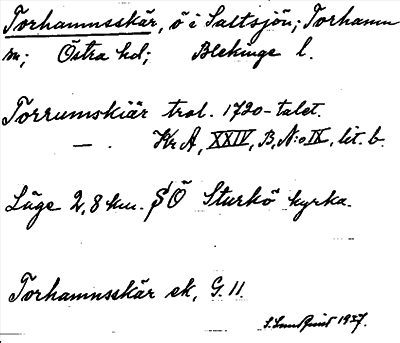 Torhamnsskär, ö i Saltsjön; Torhamn
sn; Östra hd; Blekinge l.
Torrumskiär trol. 1720-talet.
— . KrA, XXIV, B, N:o IX, lit. b.
Läge 2,8 km. SÖ Sturkö kyrka.
Torhamnsskär ek, G. 11.
S. Lundquist 1937.